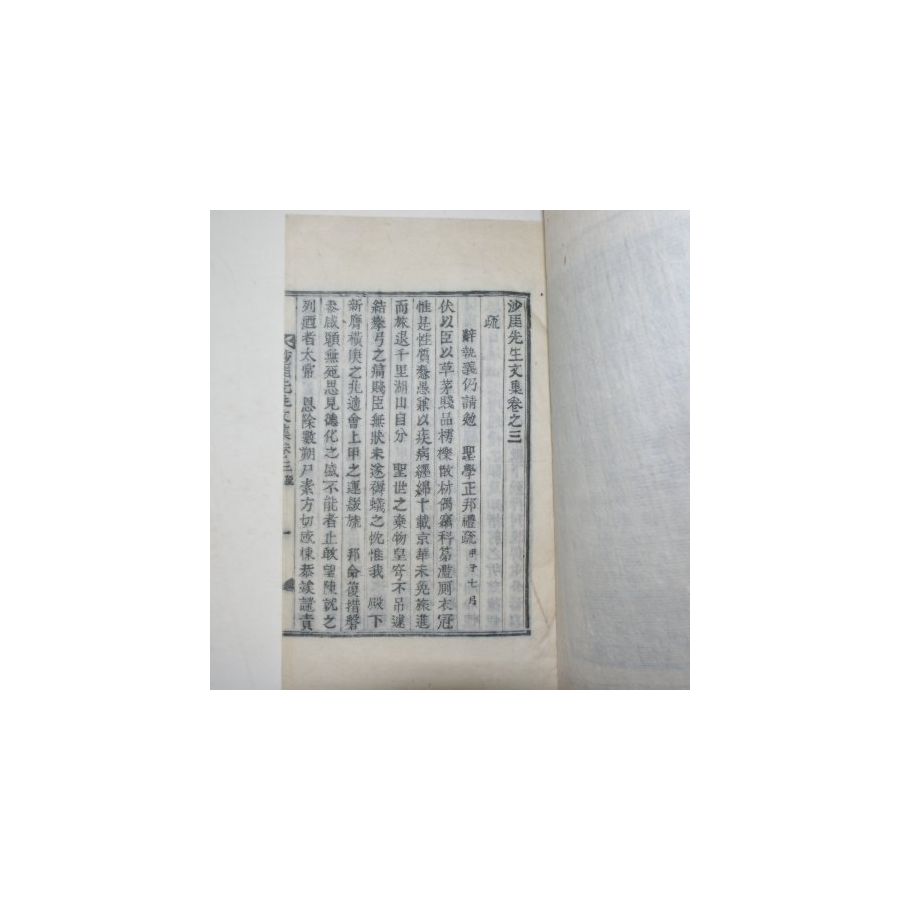 沙厓先生文集卷之三
疏
辭執義仍請勉 聖學正邦禮疏 甲子七月
伏以臣以草茅賤品樗櫟散材偶竊科第濫廁衣冠
惟是性質蠢愚兼以疾病纏綿十載京華未免旅進
而旅退千里湖山自分 聖世之棄物皇穹不吊遽
結攀弓之痛賤臣無狀未遂褥蟻之忱惟我 殿下
新膺橫庚之兆適會上甲之運綴旒 邦命復措磐
泰咸願無死思見德化之盛不能者止敢望陳就之
列迺者太常 恩除數朔尸素方切悚恭俟譴責
沙厓先生文集卷之三 一